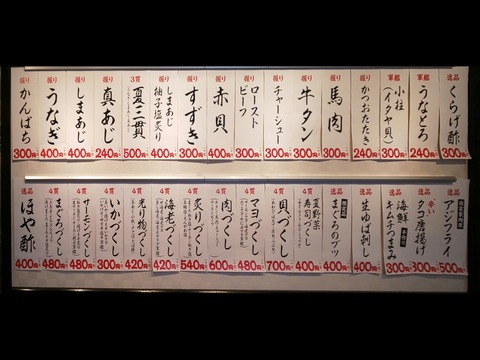 逸品 くらげ酢 300円
軍艦 うなとろ 240円
軍艦 小柱(イタヤ貝) 240円
握り かつおたたき 240円
握り 馬肉 300円
握り 牛タン 300円
握り チャーシュー 300円
握り ローストビーフ 300円
握り 赤貝 400円
握り すずき 300円
握り しまあじ柚子塩炙り 400円
3貫 夏三貫 500円
握り 真あじ 240円
握り しまあじ 400円
握り うなぎ 400円
握り かんぱち 300円
アジフライ 500円
逸品 辛い タコ唐揚げ 300円
逸品 海鮮キムチつまみ 300円
逸品 生ゆば刺し 400円
まぐろのブツ 400円
4貫 夏野菜寿司づくし 400円
4貫 貝づくし 700円
4貫 マヨづくし 480円
4貫 肉づくし 600円
4貫 炙りづくし 540円
4貫 海老づくし 420円
4貫 光り物づくし 420円
4貫 いかづくし 300円
4貫 サーモンづくし 480円
4貫 まぐろづくし 480円
逸品 ほや酢 400円